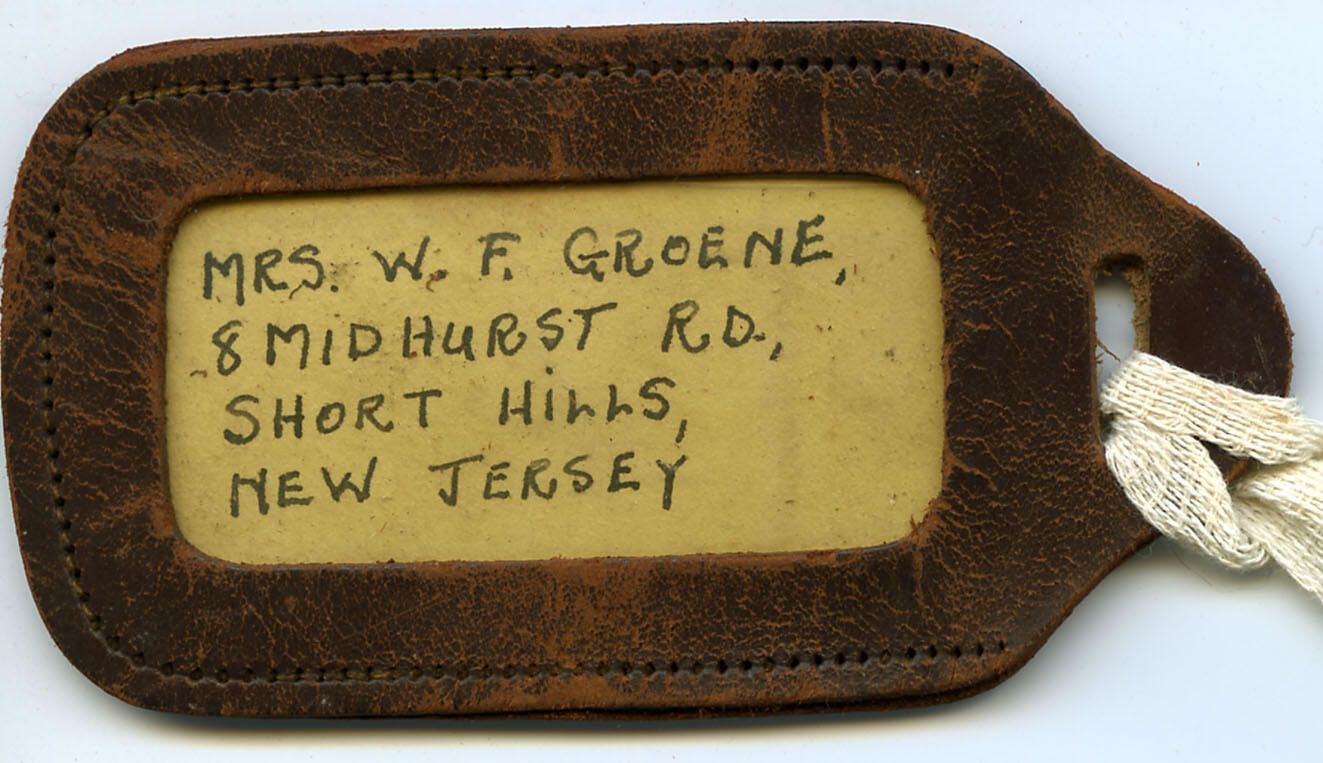 MRS. W. F. GROENE,
8 MIDHURST RD.,
SHORT HILLS,
NEW JERSEY